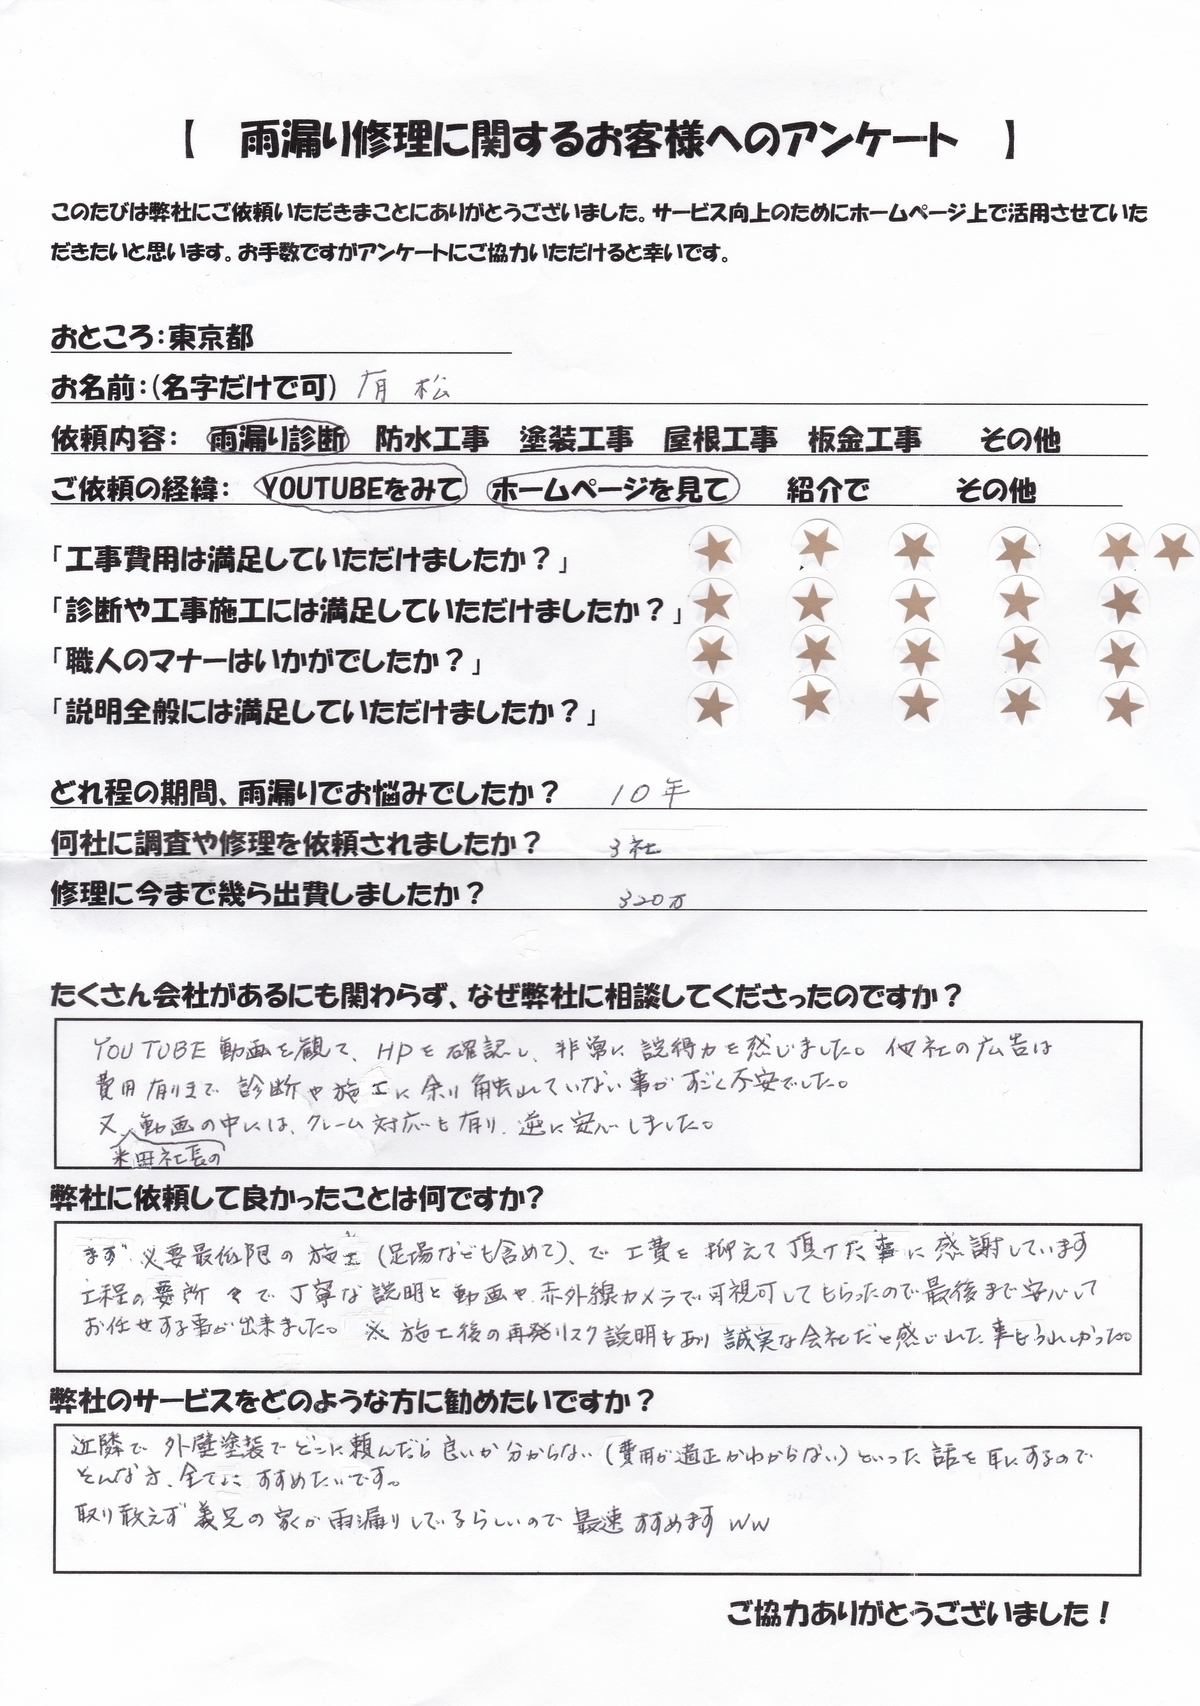 【 雨漏り修理に関するお客様へのアンケート 】
このたびは弊社にご依頼いただきまことにありがとうございました。サービス向上のためにホームページ上で活用させていた
だきたいと思います。お手数ですがアンケートにご協力いただけると幸いです。
おところ：東京都
お名前：（名字だけで可） 有松
依頼内容： 雨漏り診断 防水工事 塗装工事 屋根工事 板金工事 その他
ご依頼の経緯： YOUTUBEをみて ホームページを見て 紹介で その他
「工事費用は満足していただけましたか？」 ★ ★ ★ ★ ★ ★
「診断や工事施工には満足していただけましたか？」 ★ ★ ★ ★ ★
「職人のマナーはいかがでしたか？」 ★ ★ ★ ★ ★
「説明全般には満足していただけましたか？」 ★ ★ ★ ★ ★
どれ程の期間、雨漏りでお悩みでしたか？ 10年
何社に調査や修理を依頼されましたか？ 3社
修理に今まで幾ら出費しましたか？ 320万
たくさん会社があるにも関わらず、なぜ弊社に相談してくださったのですか？
YOUTUBE動画を観て、HPを確認し、非常に説得力を感じました。他社の広告は
費用有りきで診断や施工に余り触れていない事がすごく不安でした。
又、動画の中には、クレーム対応も有り、逆に安心しました。
米田社長の
弊社に依頼して良かったことは何ですか？
まず必要最低限の施工（足場なども含めて）、で工費を抑えて頂けた事に感謝しています
工程の要所々で丁寧な説明と動画や赤外線カメラで可視可してもらったので最後まで安心して
お任せする事が出来ました。 ※施工後の再発リスク説明もあり誠実な会社だと感じれた事もうれしかった。
弊社のサービスをどのような方に勧めたいですか？
近隣で外壁塗装でどこに頼んだら良いか分からない（費用が適正かわからない）といった話を耳にするので
そんな方、全てにすすめたいです。
取り敢えず義兄の家が雨漏りしているらしいので最速すすめますww
ご協力ありがとうございました！